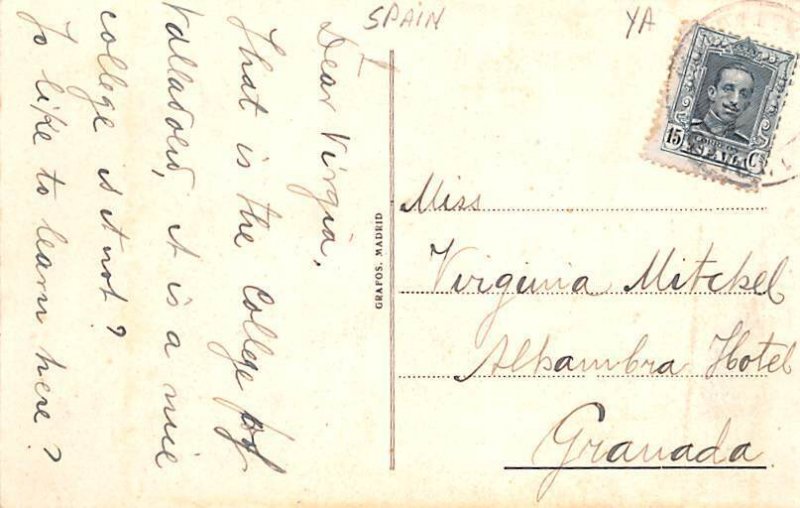 SPAIN
YA
Dear Virgia,
That is the College of
Valladolid, it is a nice
college is it not?
To like to learn here?
GRAFOS. MADRID
15 Cs
ESPAÑA
Miss
Virginia Mitckel
Alhambra Hotel
Granada